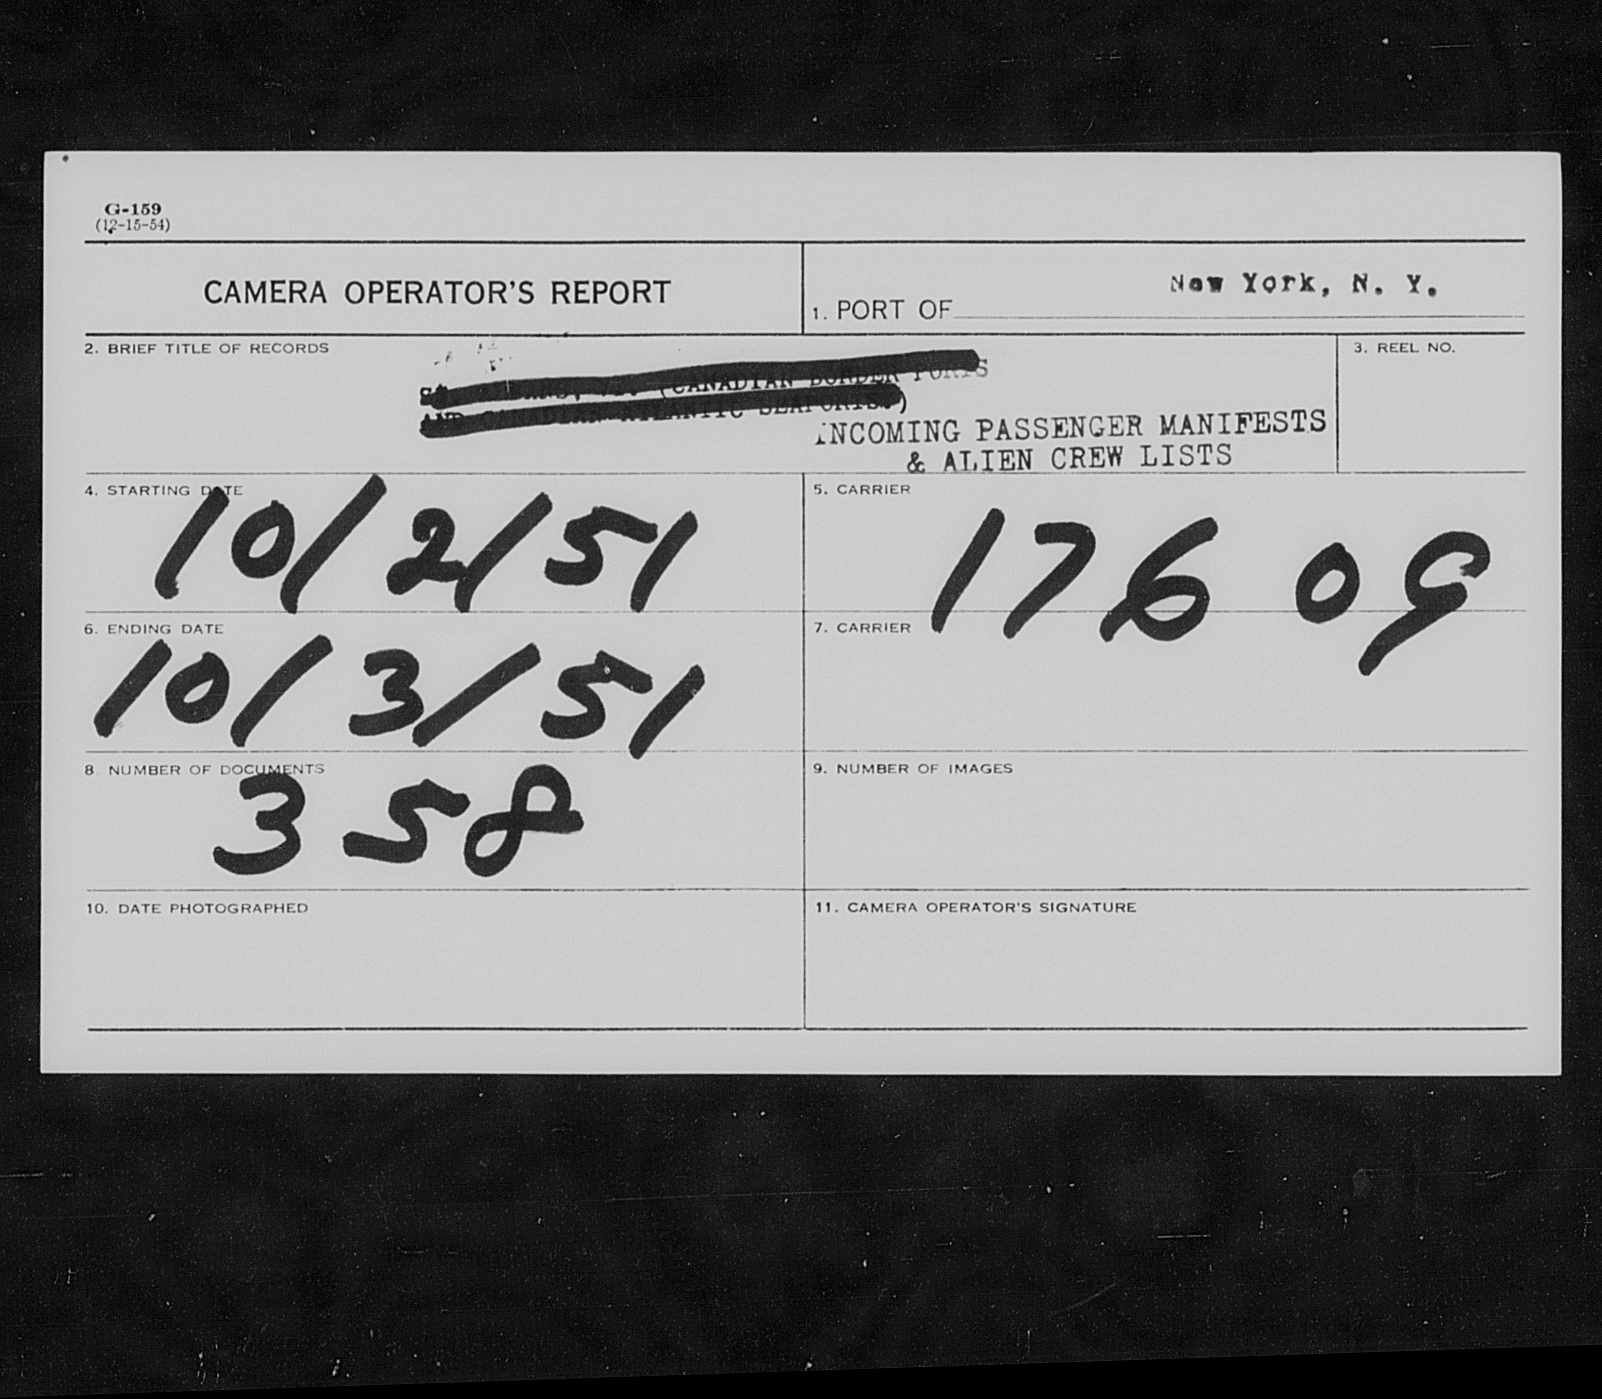 G-159
(12-15-54)
CAMERA OPERATOR'S REPORT
1. PORT OF New York, N. Y.
2. BRIEF TITLE OF RECORDS
(CANADIAN BORDER PORTS
AND CANADIAN ATLANTIC SEAPORTS.)
INCOMING PASSENGER MANIFESTS
& ALIEN CREW LISTS
3. REEL NO.
4. STARTING DATE
10/2/51
5. CARRIER
17609
6. ENDING DATE
10/3/51
7. CARRIER
8 NUMBER OF DOCUMENTS
358
9. NUMBER OF IMAGES
10. DATE PHOTOGRAPHED
11. CAMERA OPERATOR'S SIGNATURE